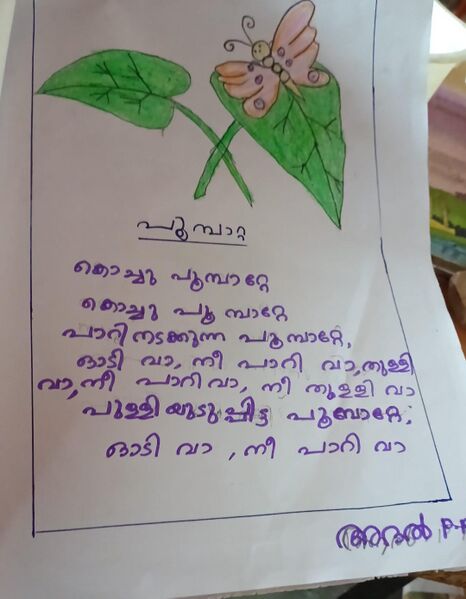 പൂമ്പാറ്റ
കൊച്ചു പൂമ്പാറ്റേ
കൊച്ചു പൂ മ്പാറ്റേ
പാറി നടക്കുന്ന പൂമ്പാറ്റേ,
ഓടി വാ, നീ പാറി വാ, തുള്ളി
വാ, നീ പാറി വാ, നീ തുള്ളി വാ
പുള്ളിയുടുപ്പിട്ട പൂമ്പാറ്റേ,
ഓടി വാ , നീ പാറി വാ